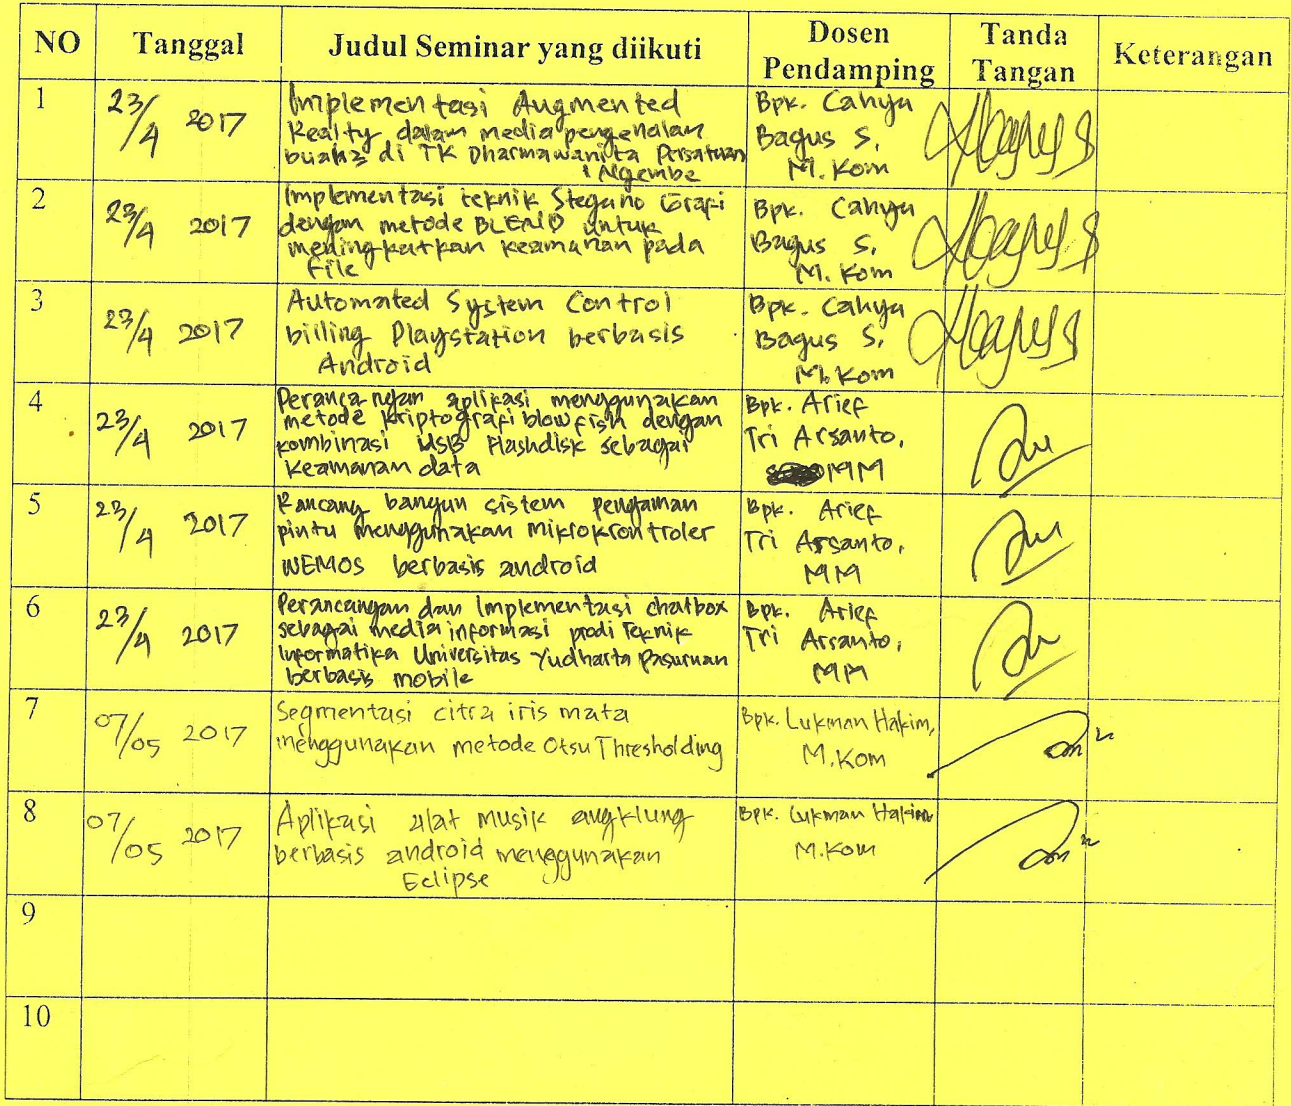 NO Tanggal Judul Seminar yang diikuti Dosen Pendamping Tanda Tangan Keterangan
1 23/4 2017
Implementasi Augmented
Realty dalam media pengenalan
buah2 di TK Dharmawanita Persatuan
1 Ngembe
Bpk. Cahya
Bagus S,
M.Kom
2 23/4 2017
Implementasi teknik Stegano Grafi
dengan metode BLEND untuk
meningkatkan keamanan pada
File
Bpk. Cahya
Bagus S,
M. Kom
3 23/4 2017
Automated System Control
billing Playstation berbasis
Android
Bpk. Cahya
Bagus S,
M. Kom
4 23/4 2017
Perancangan aplikasi menggunakan
metode kriptografi blowfish dengan
kombinasi USB Flashdisk sebagai
keamanan data
Bpk. Arief
Tri Arsanto,
MM
5 23/4 2017
Rancang bangun sistem pengaman
pintu menggunakan mikrokrontroler
WEMOS berbasis android
Bpk. Arief
Tri Arsanto,
MM
6 23/4 2017
Perancangan dan Implementasi chatbox
sebagai media informasi prodi Teknik
Informatika Universitas Yudharta Pasuruan
berbasis mobile
Bpk. Arief
Tri Arsanto,
MM
7 07/05 2017
Segmentasi citra iris mata
menggunakan metode Otsu Thresholding
Bpk. Lukman Hakim,
M.Kom
8 07/05 2017
Aplikasi alat musik angklung
berbasis android menggunakan
Eclipse
Bpk. Lukman Hakim
M.Kom
9
10